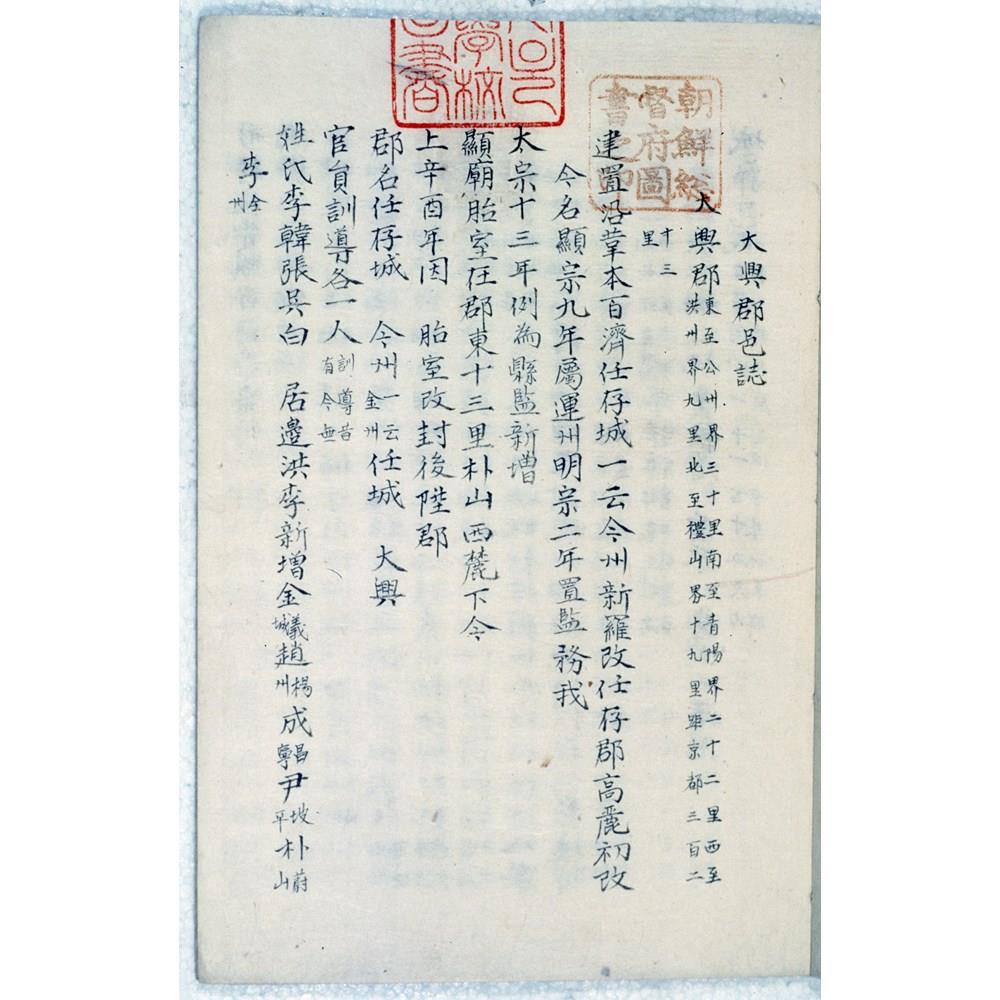 朝鮮總
督府圖
書之印
大興郡邑誌
大興郡東至公州界三十里南至青陽界二十二里西至
洪州界九里北至禮山界十九里距京都三百二
十三里
建置沿革本百濟任存城一云今州新羅改任存郡高麗初改
今名顯宗九年屬運州明宗二年置監務我
太宗十三年例為縣監新增
顯廟胎室在郡東十三里朴山西麓下今
上辛酉年因 胎室改封後陞郡
郡名任存城 今州一云金州任城 大興
官員訓導各一人訓導昔有今無
姓氏李韓張吳白 居邊洪李新增金義城趙楊州成昌寧尹坡平朴蔚山
李全州